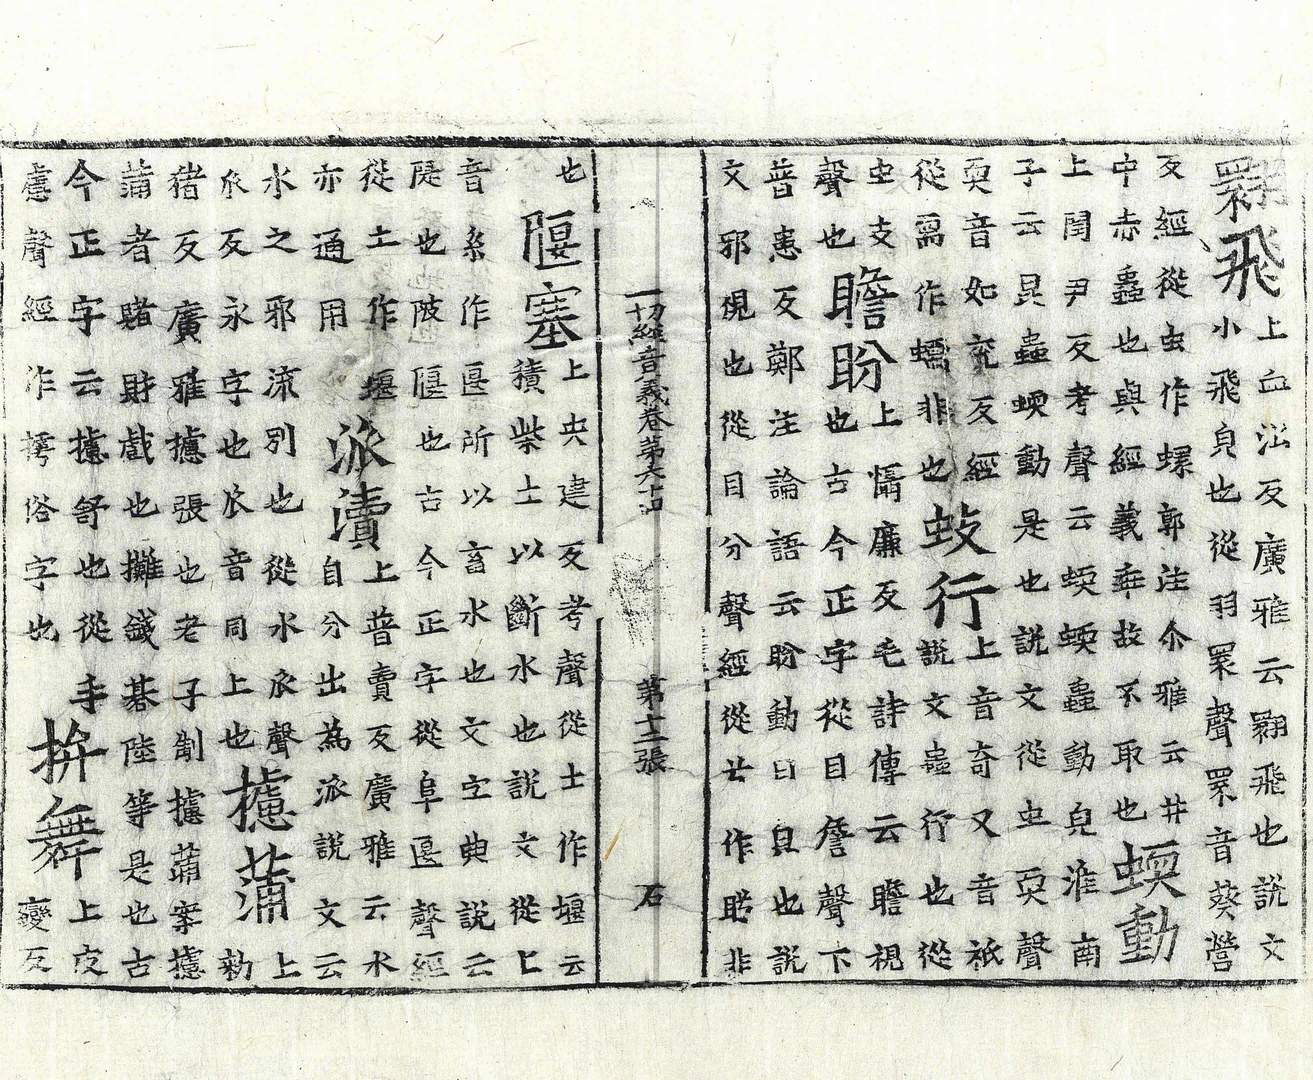 翾飛
上血沿反廣雅云翾飛也說文
小飛皃也從羽睘聲睘音葵營
反經從虫作蠉郭注尒雅云井
中赤蟲也與經義乖故不取也
蝡動
上閏尹反考聲云蝡蝡蟲動皃淮南
子云昆蟲蝡動是也說文從虫耎聲
耎音如兖反經
從需作蠕非也
蚑行
上音奇又音祇
說文蟲行也從
虫支
聲也
瞻盼
上懾廉反毛詩傳云瞻視
也古今正字從目詹聲下
普患反鄭注論語云盼動目皃也說
文邪視也從目分聲經從作盻非
一切經音義卷第六十四
第十二張
石
也
隁塞
上央建反考聲從土作堰云
積柴土以斷水也說文從匸
音系作匽所以畜水也文字典說云
隄也陂隁也古今正字從阜匽聲經
從土作堰
亦通用
派瀆
上普賣反廣雅云水
自分出為派說文云
水之邪流別也從水𠂢聲
𠂢反永字也𠂢音同上也
攄蒲
上
勑
猪反廣雅攄張也老子制攄蒲案攄
蒲者賭財戲也攤錢碁陸等是也古
今正字云攄舒也從手
慮聲經作摴俗字也
拚舞
上皮
變反